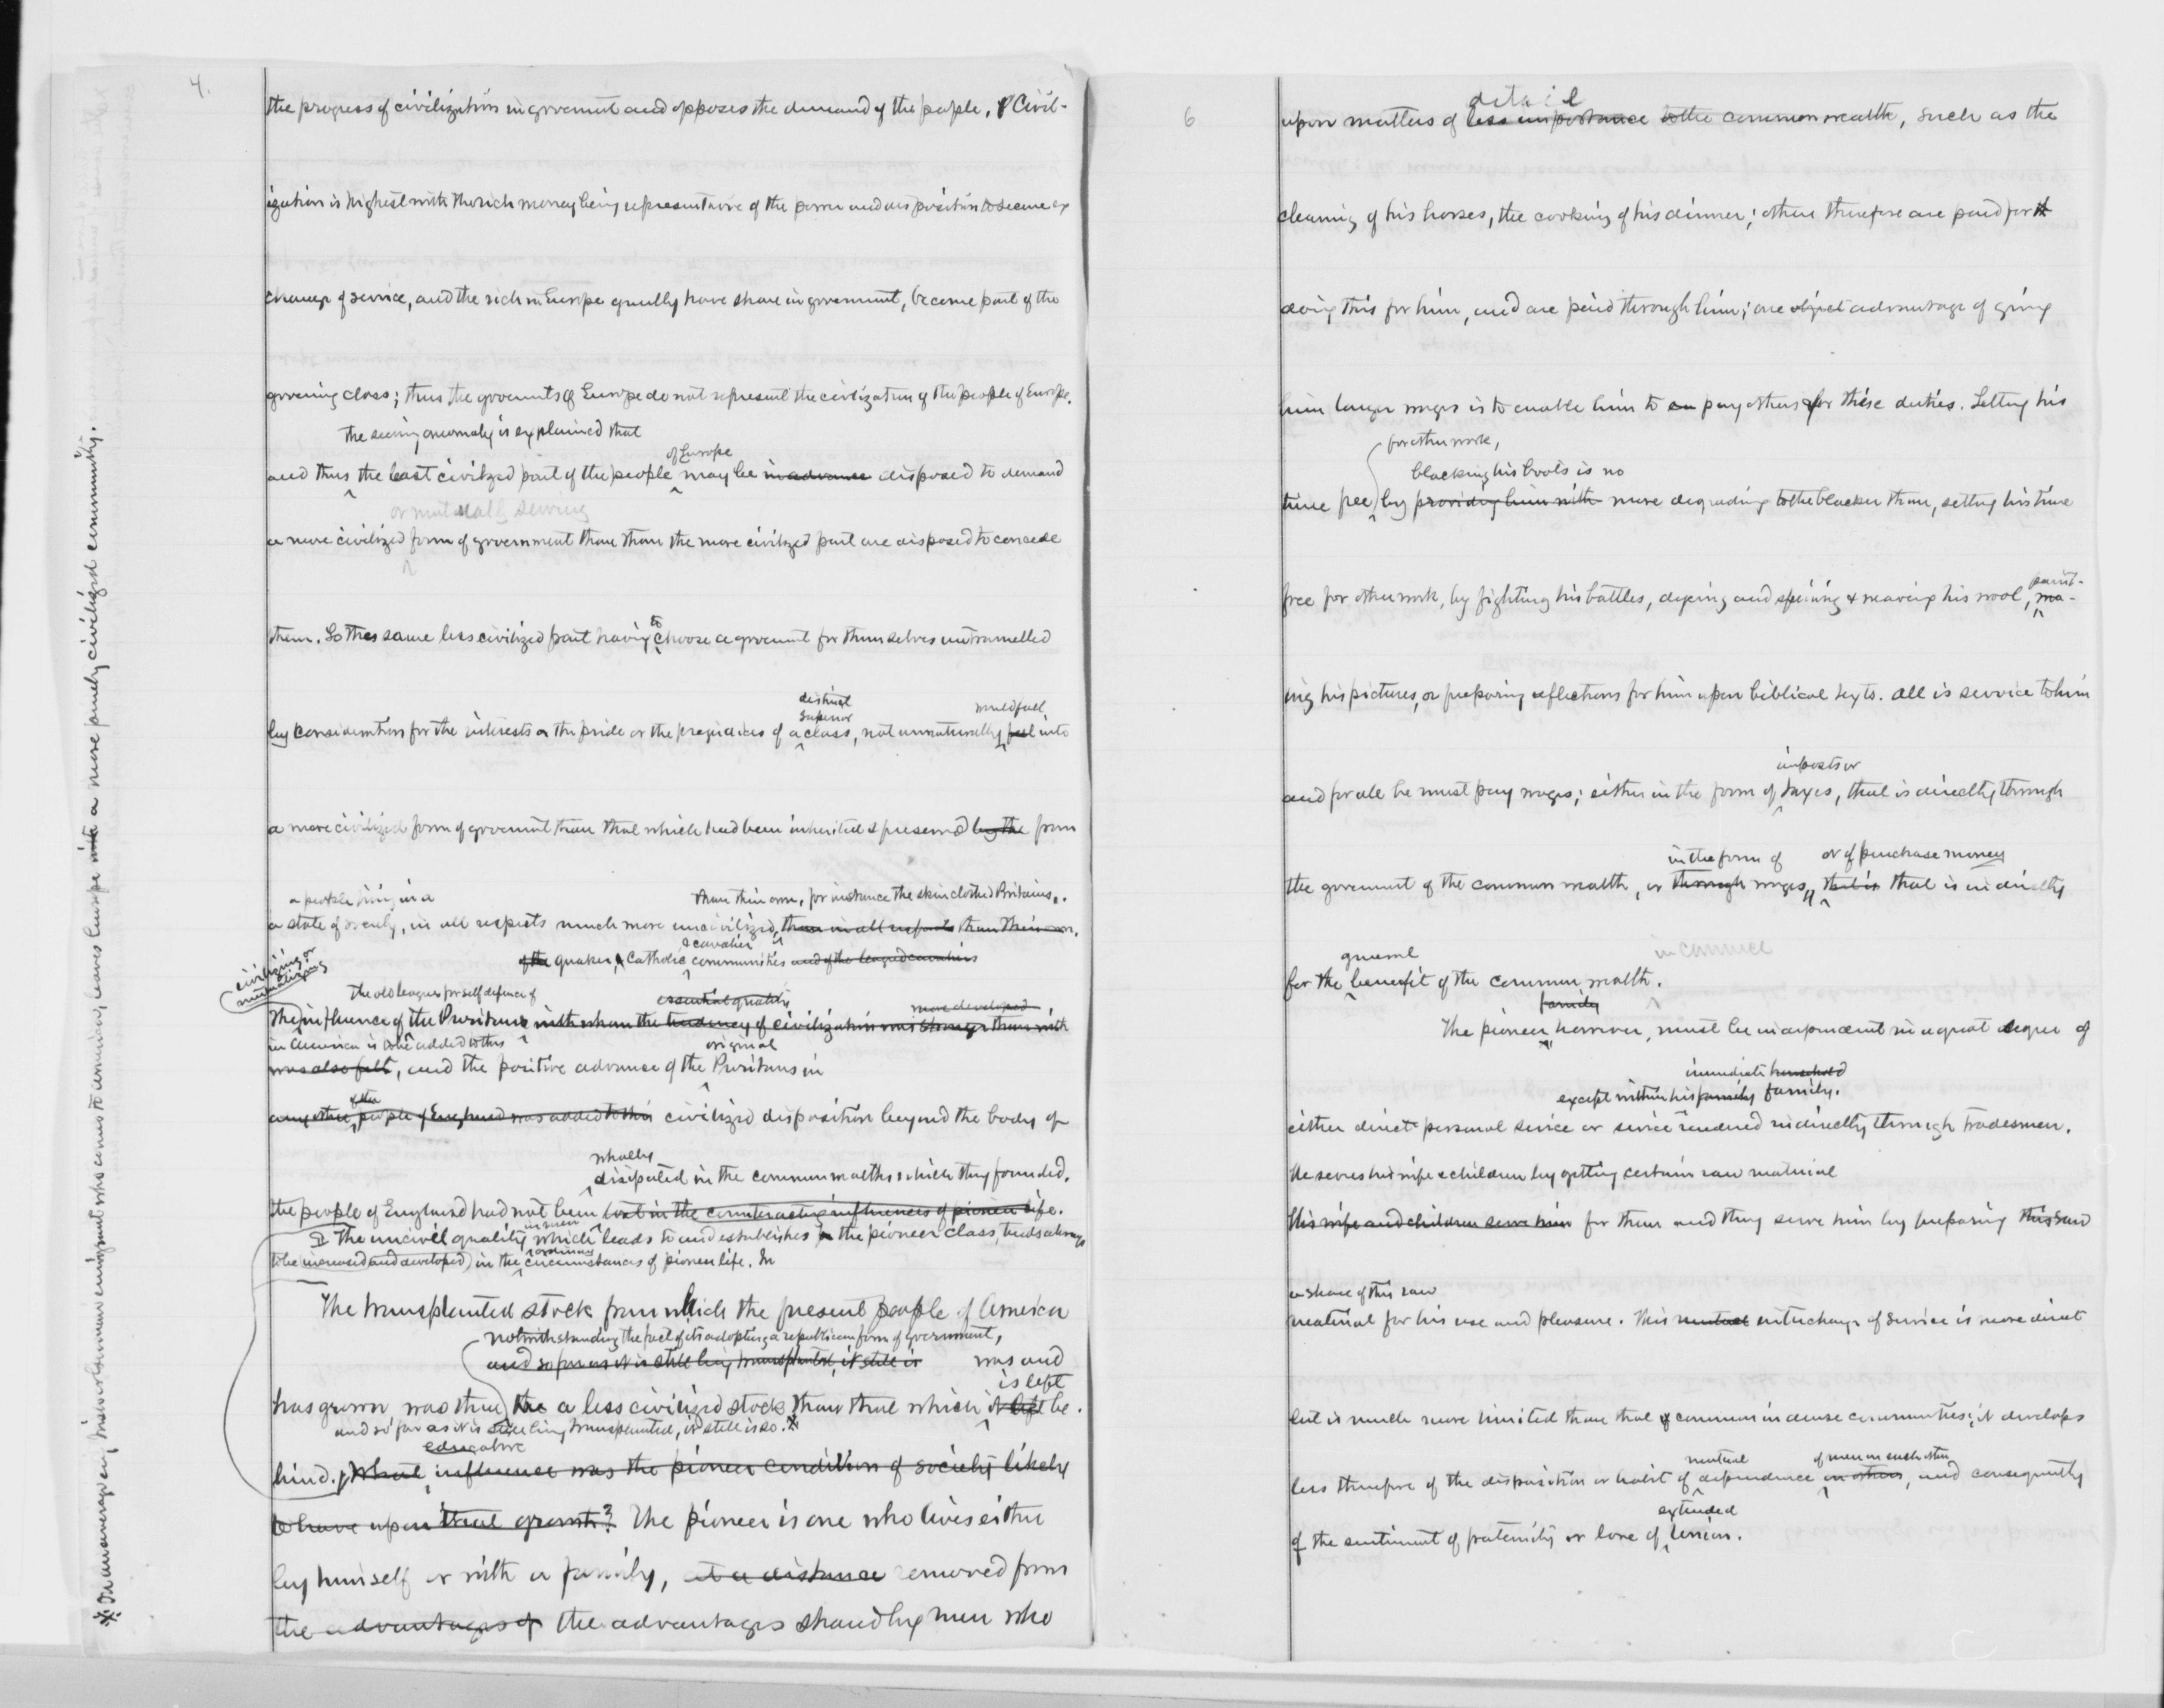 4.
the progress of civilization in goverment and opposes the demand of the people. Civil-
ization is highest with the rich money being representative of the power and disposition to secure ex
change of service, and the rich in Europe generally have share in goverment, become part of the
governing class; thus the goverments of Europe do not represent the civilization of the people of Europe.
the seeming anomaly is explained that
of Europe
and thus the least civilized part of the people may be in advance disposed to demand
or mutually serving
a more civilized form of government than than the more civilized part are disposed to concede
to
them. So this same less civilized part having choose a goverment for themselves untramelled
distinct
superior would fall
by consideration for the interests or the pride or the prejudices of a class, not unnaturally fell into
a more civilized form of goverment than that which had been inherited & preserved by the from
a people living in a than their own, for instance the skin clothed Britains,
a state of society, in all respects much more uncivilized, than in all respects than their own.
& cavalier
of the quaker, & Catholic communities and of the cavaliers
civilizing or
The old leagues for self defence of
essential quality more developed
The influence of the Puritans with whom the tendency of civilization was stronger than with
in America is to be added to this original
was also felt, and the positive advance of the Puritans in
of the
any other people of England was added to this civilized disposition beyond the body of
wholly
dissipated in the commonwealths which they founded.
the people of England had not been lost in the counteracting influences of pioneer life.
in men
The uncivil quality which leads to and establishes the pioneer class, tends always
ordinary
to be increased and developed in the circumstances of pioneer life. In
The transplanted stock from which the present people of America
notwithstanding the fact of its adopting a republican form of government,
and so far as it is still being transplanted, it still is was and
is left
has grown was then the a less civilized stock than that which it left be-
and so far as it is still being transplanted, it still is so.※
educative
hind. What influence was the pioneer condition of society likely
to have upon that growth? The pioneer is one who lives either
by himself or with a family, at a distance removed from
the advantages of the advantages shared by men who
※ On an average, leaves Europe with a more purely civilized community.
6
detail
upon matters of less importance to the common wealth, such as the
cleaning of his horses, the cooking of his dinner; others therefore are paid for it
doing this for him, and are paid through him; one object advantage of giving
him larger wages is to enable him to pay others for these duties. Setting his
for other work,
blacking his boots is no
time free by providing him with more degrading to the blacker than, setting his time
paint-
free for other work, by fighting his battles, dyeing and spining & weaving his wool, ma-
ing his pictures, or preparing reflections for him upon biblical texts. All is service to him
imposts or
and for all he must pay wages; either in the form of taxes, that is directly through
in the form of or of purchase money
the goverment of the common wealth, or through wages, that is that is indirectly
general in connnce
for the benefit of the common wealth.
family
The pioneer, however, must be independent in a great degree of
immediate household
except within his family family.
either direct personal service or service rendered indirectly through tradesmen.
He serves his wife & children by getting certain raw material
His wife and children serve him for them and they serve him by preparing this raw
a share of this raw
material for his use and pleasure. This mutual interchange of service is more direct
but is much more limited than that of common in dense communities; it develops
mutual of men on each other
less therefore of the disposition or habit of dependence on others, and consequently
extended
of the sentiment of fraternity or love of Union.